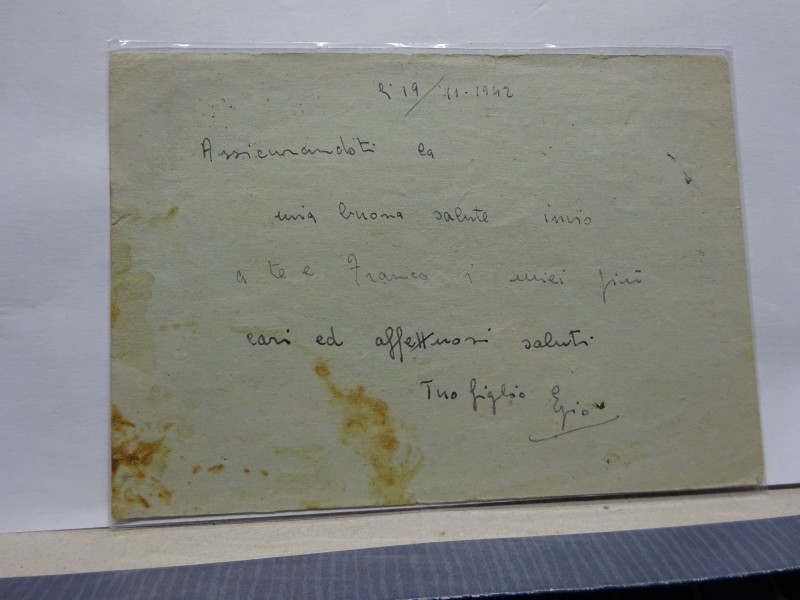 li 19/11-1942
Assicurandoti la
mia buona salute invio
a te e Franco i miei più
cari ed affettuosi saluti
Tuo figlio